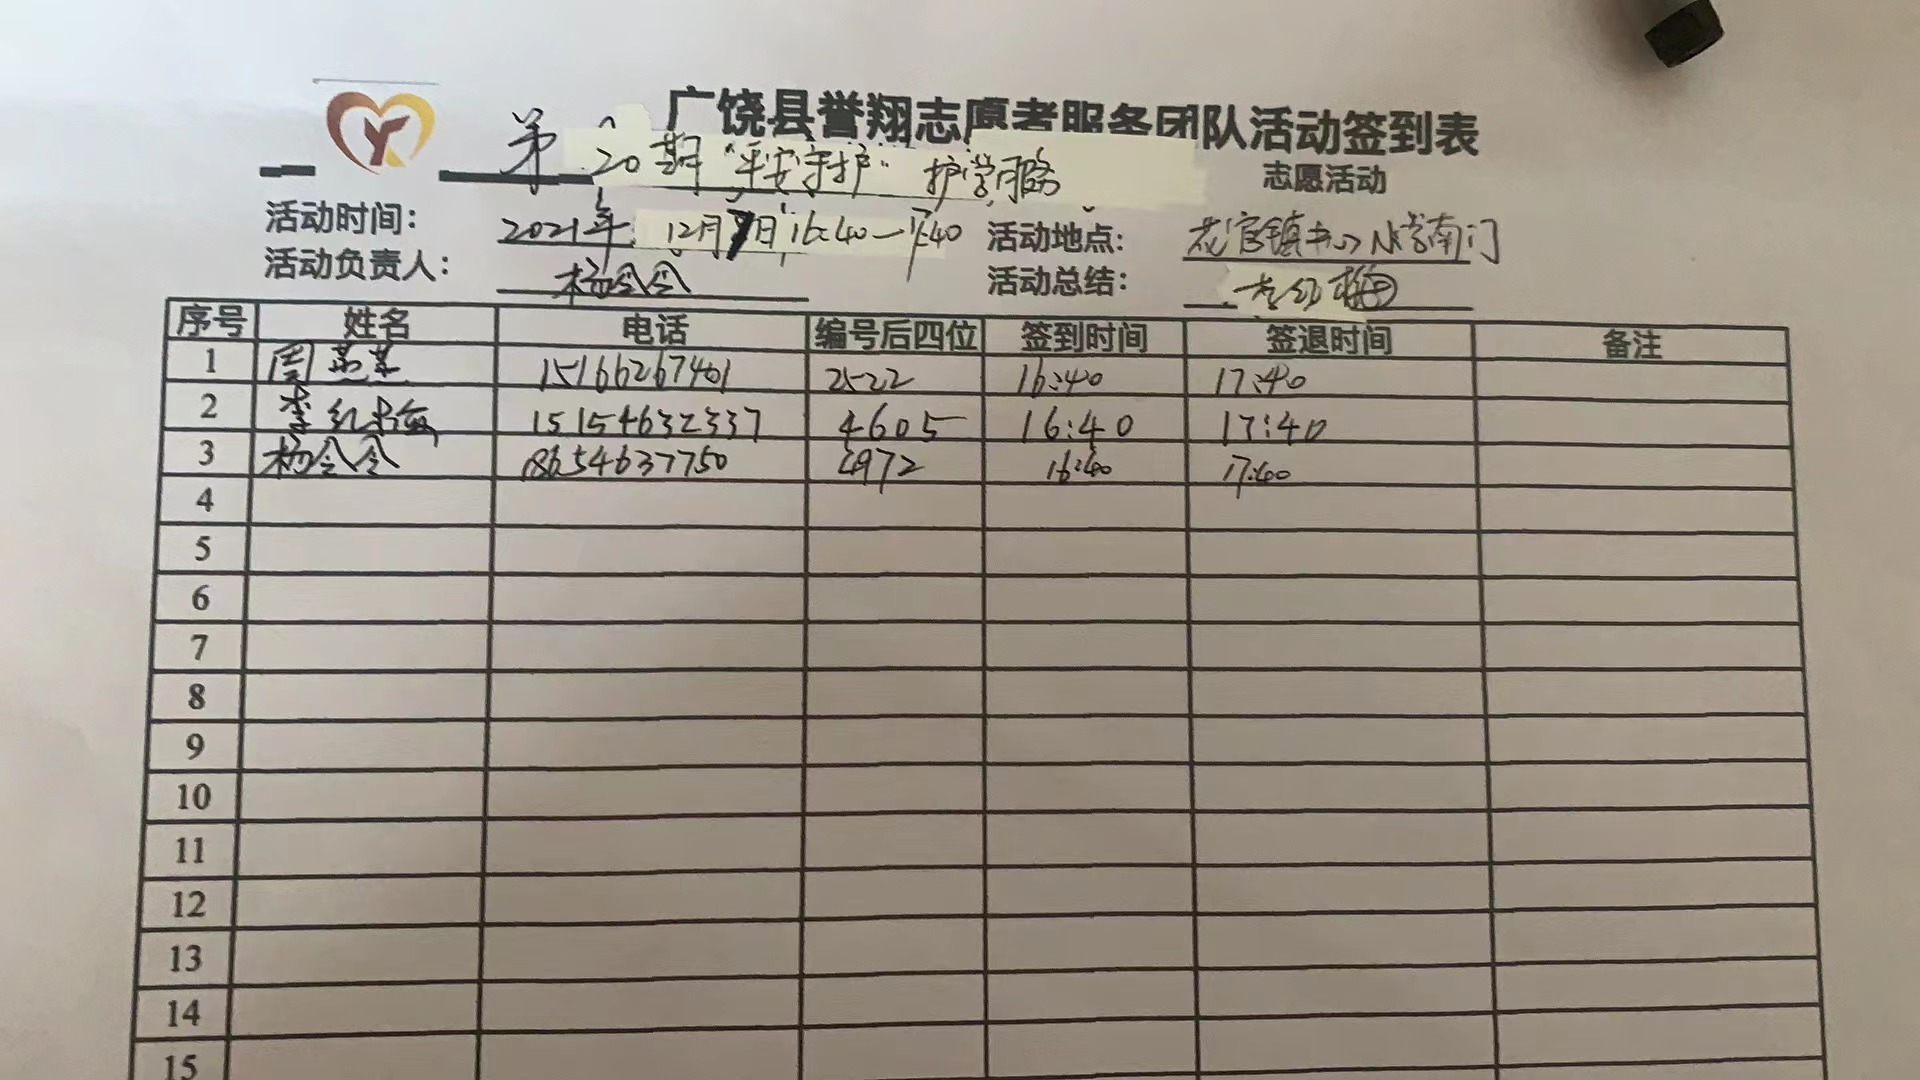 广饶县誉翔志愿者服务团队活动签到表
第20期“平安守护”护学服务 志愿活动
活动时间： 2021年12月7日16:40—17:40 活动地点： 花官镇中心小学南门
活动负责人： 杨令令 活动总结： 李红梅
序号 姓名 电话 编号后四位 签到时间 签退时间 备注
1 周 15166267401 2522 16:40 17:40
2 李红梅 15154632337 4605 16:40 17:40
3 杨令令 18654637750 4972 16:40 17:40
4
5
6
7
8
9
10
11
12
13
14
15